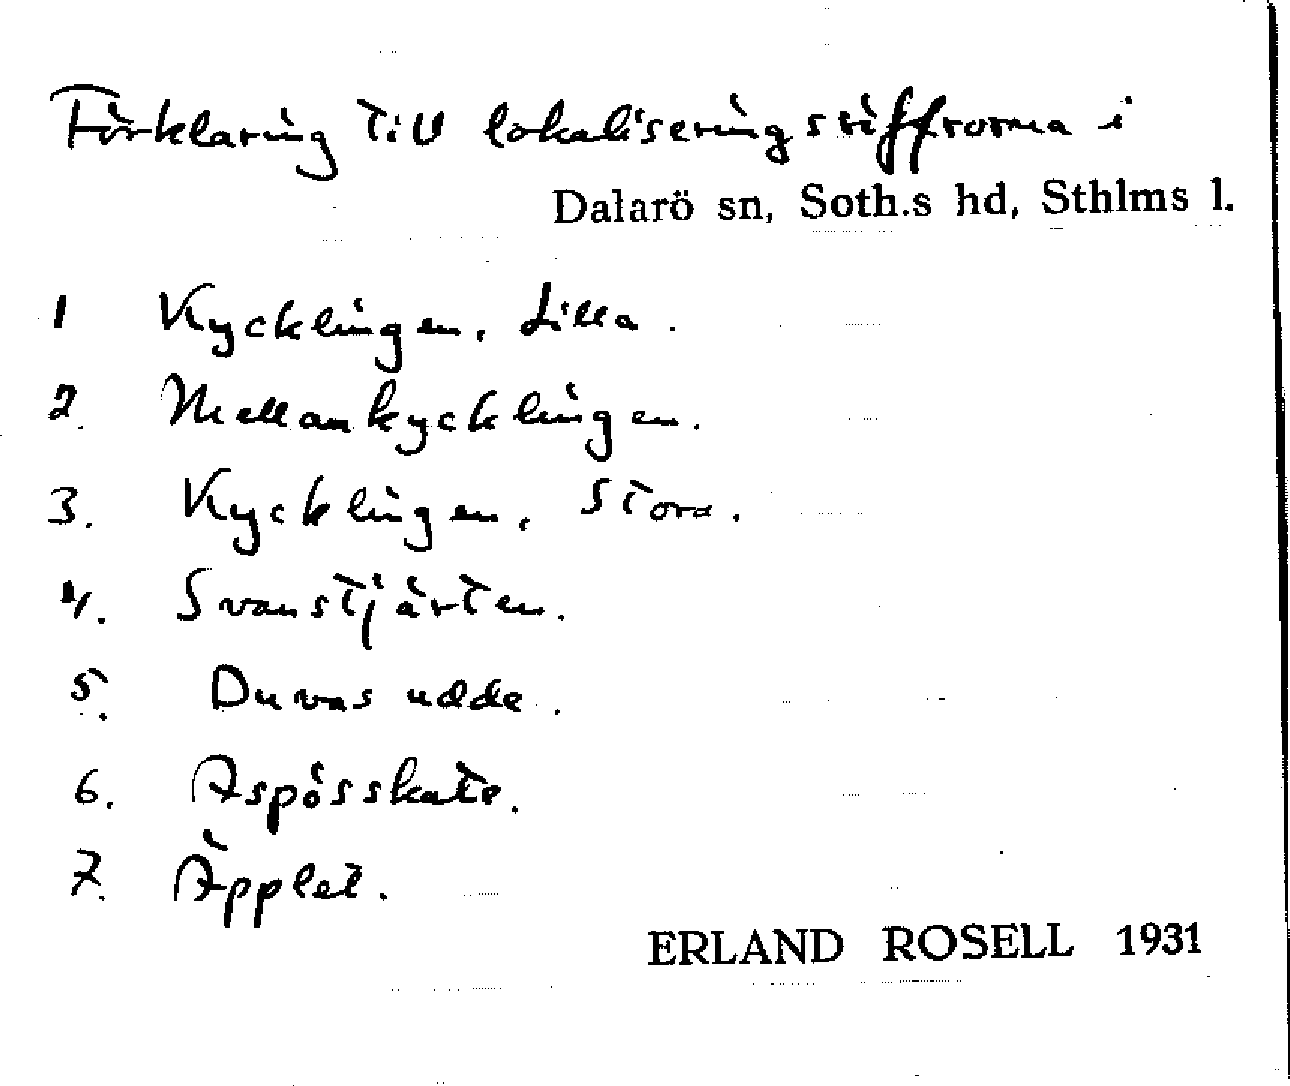 Förklaring till lokaliseringssiffrorna i
Dalarö sn, Soth.s hd, Sthlms l.
1 Kycklingen, Lilla.
2. Mellankycklingen.
3. Kycklingen, Stora.
4. Svanstjärten.
5. Duvas udde.
6. Aspösskate.
7. Äpplet.
ERLAND ROSELL 1931